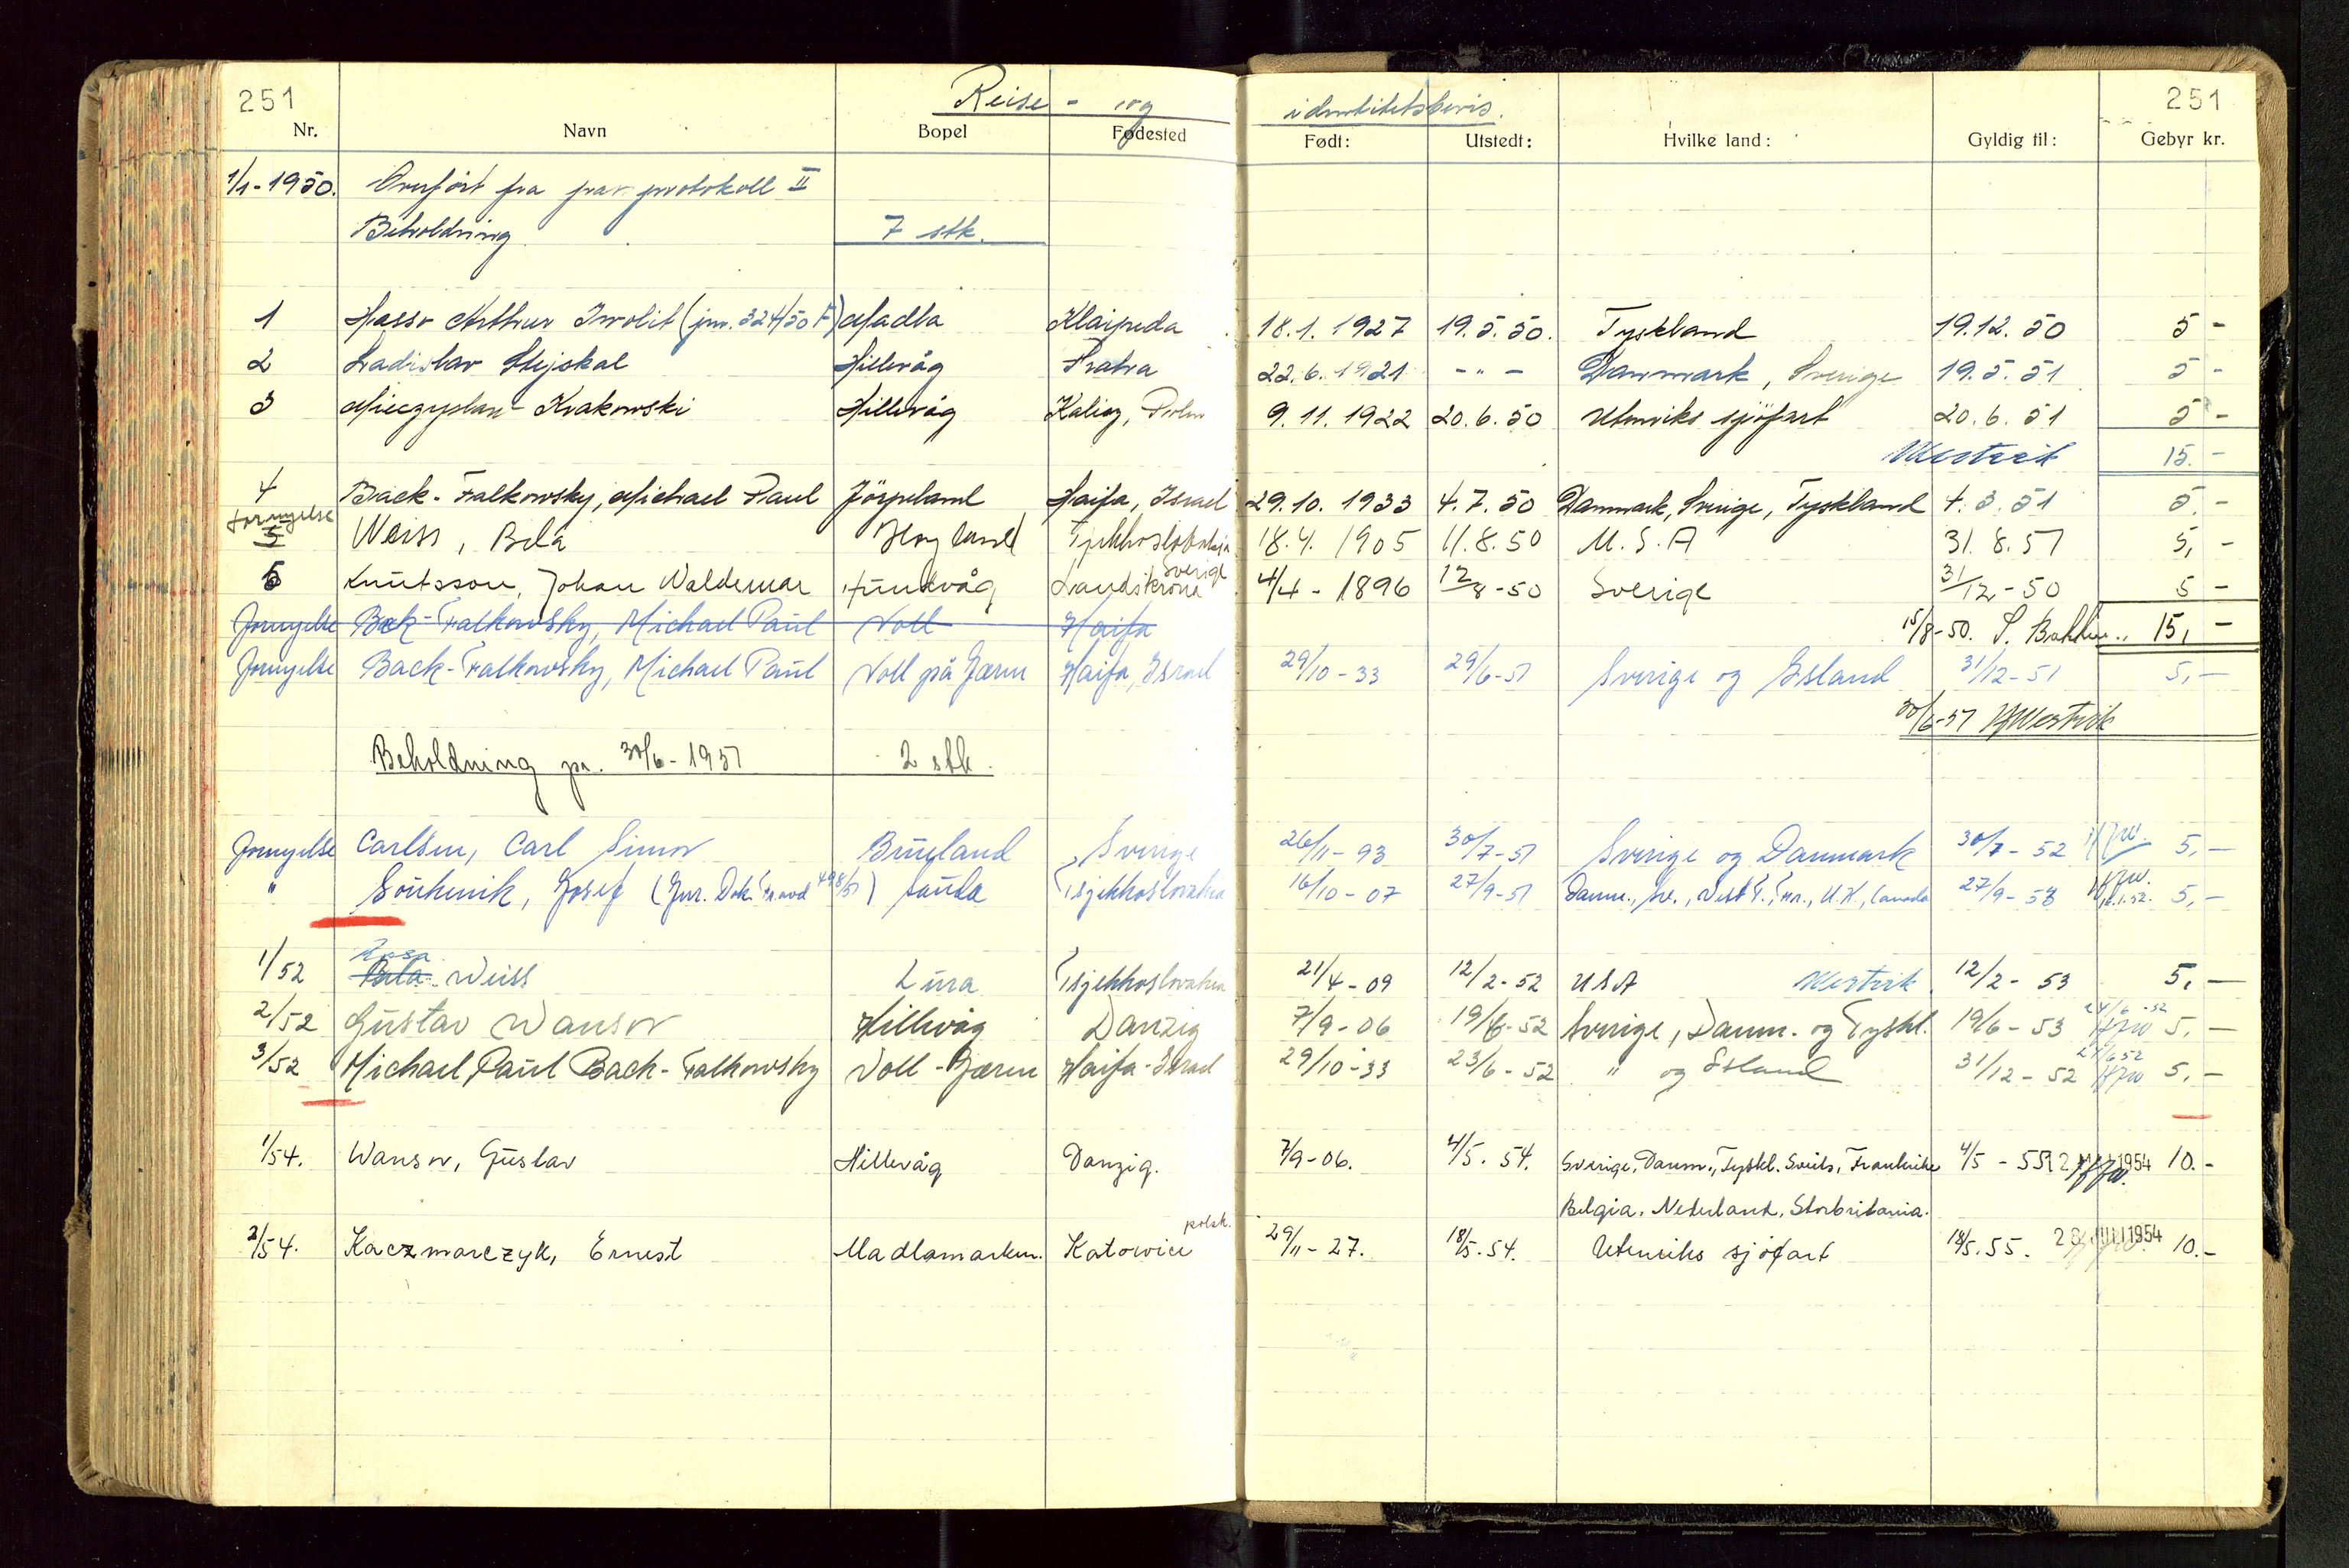 251 Reise - og identitetsbevis. 251
Nr. Navn Bopel Fødested Født: Utstedt: Hvilke land: Gyldig til: Gebyr kr.
1/1-1950. Overført fra protokoll II
Beholdning 7 stk.
1 Hasso Arthur Iwolit (jnr. 324/50 F) Madla Klaipeda 18.1.1927 19.5.50. Tyskland 19.12.50 5 -
2 Ladislav Stejskal Hillevåg Praha 22.6.1921 - " - Danmark, Sverige 19.5.51 5 -
3 Mieczyslaw Krakowski Hillevåg Kalisz, Polen 9.11.1922 20.6.50 Utenriks sjöfart 20.6.51 5 -
Westvik 15.-
4 Back-Falkowsky, Michael Paul Jörpeland Haifa, Israel 29.10.1933 4.7.50 Danmark, Sverige, Tyskland 4.3.51 5.-
fornyelse
5 Weiss, Bela Høyland Tjekkoslovakia 18.4.1905 11.8.50 U.S.A 31.8.51 5, -
5 Knutsson, Johan Waldemar Hundvåg Landskrona Sverige 4/4-1896 12/8-50 Sverige 31/12-50 5 -
Fornyelse Back-Falkowsky, Michael Paul Voll Haifa 15/8-50. 15, -
Fornyelse Back-Falkowsky, Michael Paul Voll på Jæren Haifa, Israel 29/10-33 29/6-51 Sverige og Island 31/12-51 5, -
30/6-51 Westvik
Beholdning pr. 30/6-1951 2 stk.
Fornyelse Carlsen, Carl Simon Brueland Sverige 26/11-93 30/7-51 Sverige og Danmark 30/7-52 5, -
" Souhenik, Josef (Jnr. Dok. 498/51) Sauda Tsjekkoslovakia 16/10-07 27/9-51 Danm., Sv., Vest T., Fr., U.K., Canada 27/9-53 5, -
1/52 Rosa Bela Weiss Lura Tsjekkoslovakia 21/4-09 12/2-52 USA Westvik 12/2-53 5, -
2/52 Gustav Wansor Hillevåg Danzig 7/9-06 19/6-52 Sverige, Danm. og Tyskl. 19/6-53 24/6-52 5, -
3/52 Michael Paul Back-Falkowsky Voll-Jæren Haifa-Israel 29/10-33 23/6-52 " og Island 31/12-52 24/6 52 5, -
1/54. Wansor, Gustav Hillevåg Danzig. 7/9-06. 4/5.54. Sverige, Danm., Tyskl. Sveits, Frankrike 4/5-55 12 MAI 1954 10.-
Belgia, Nederland, Storbritania.
2/54. Kaczmarczyk, Ernest Madlamarken. Katowice polsk. 29/11-27. 18/5.54. Utenriks sjöfart 18/5.55. 28 JULI 1954 10.-